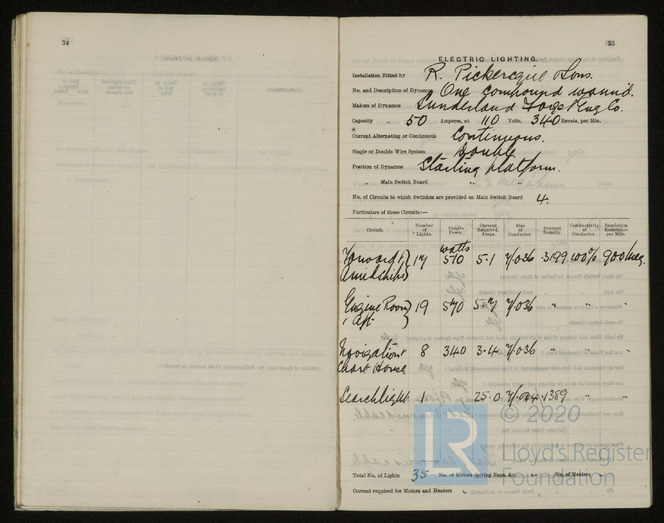 34
35
ELECTRIC LIGHTING.
Installation Fitted by R. Pickersgill & Sons.
No. and Description of Dynamos One compound wound.
Makers of Dynamos Sunderland Forge & Eng Co.
Capacity " 50 Amperes, at 110 Volts, 340 Revols. per Min.
Current Alternating or Continuous Continuous.
Single or Double Wire System Double
Position of Dynamos Starting platform.
" Main Switch Board " "
No. of Circuits to which Switches are provided on Main Switch Board 4.
Particulars of these Circuits:—
Circuit. Number of Lights. Candle Power. Current Required. Amps. Size of Conductor. Current Density. Conductivity of Conductor. Insulation Resistance per Mile.
watts
Forward & Amidships 17 510 5.1 7/036 .3199 100% 900 meg.
Engine Room & Aft 19 570 5.7 7/036 " " "
Navigation & Chart House 8 340 3.4 7/036 " " "
Searchlight 1 25.0 .1389
Total No. of Lights 35 No. of Motors driving Fans, &c. No. of Heaters
Current required for Motors and Heaters
© 2020
Lloyd's Register
Foundation
LR